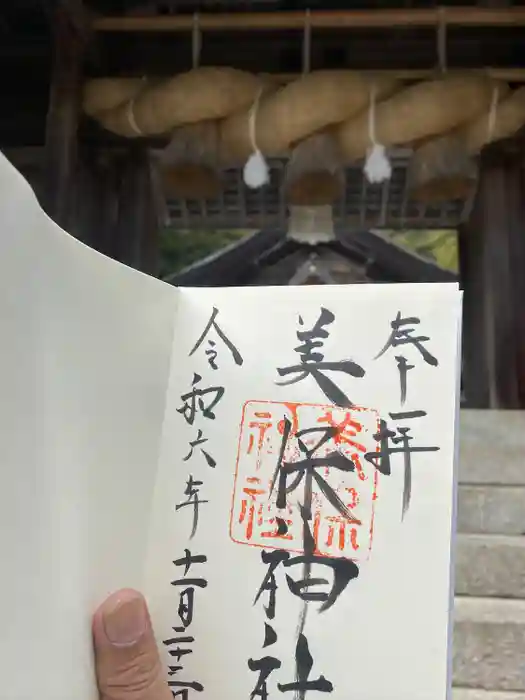 奉拝
美保神社
美保
神社
令和六年十一月二十二日